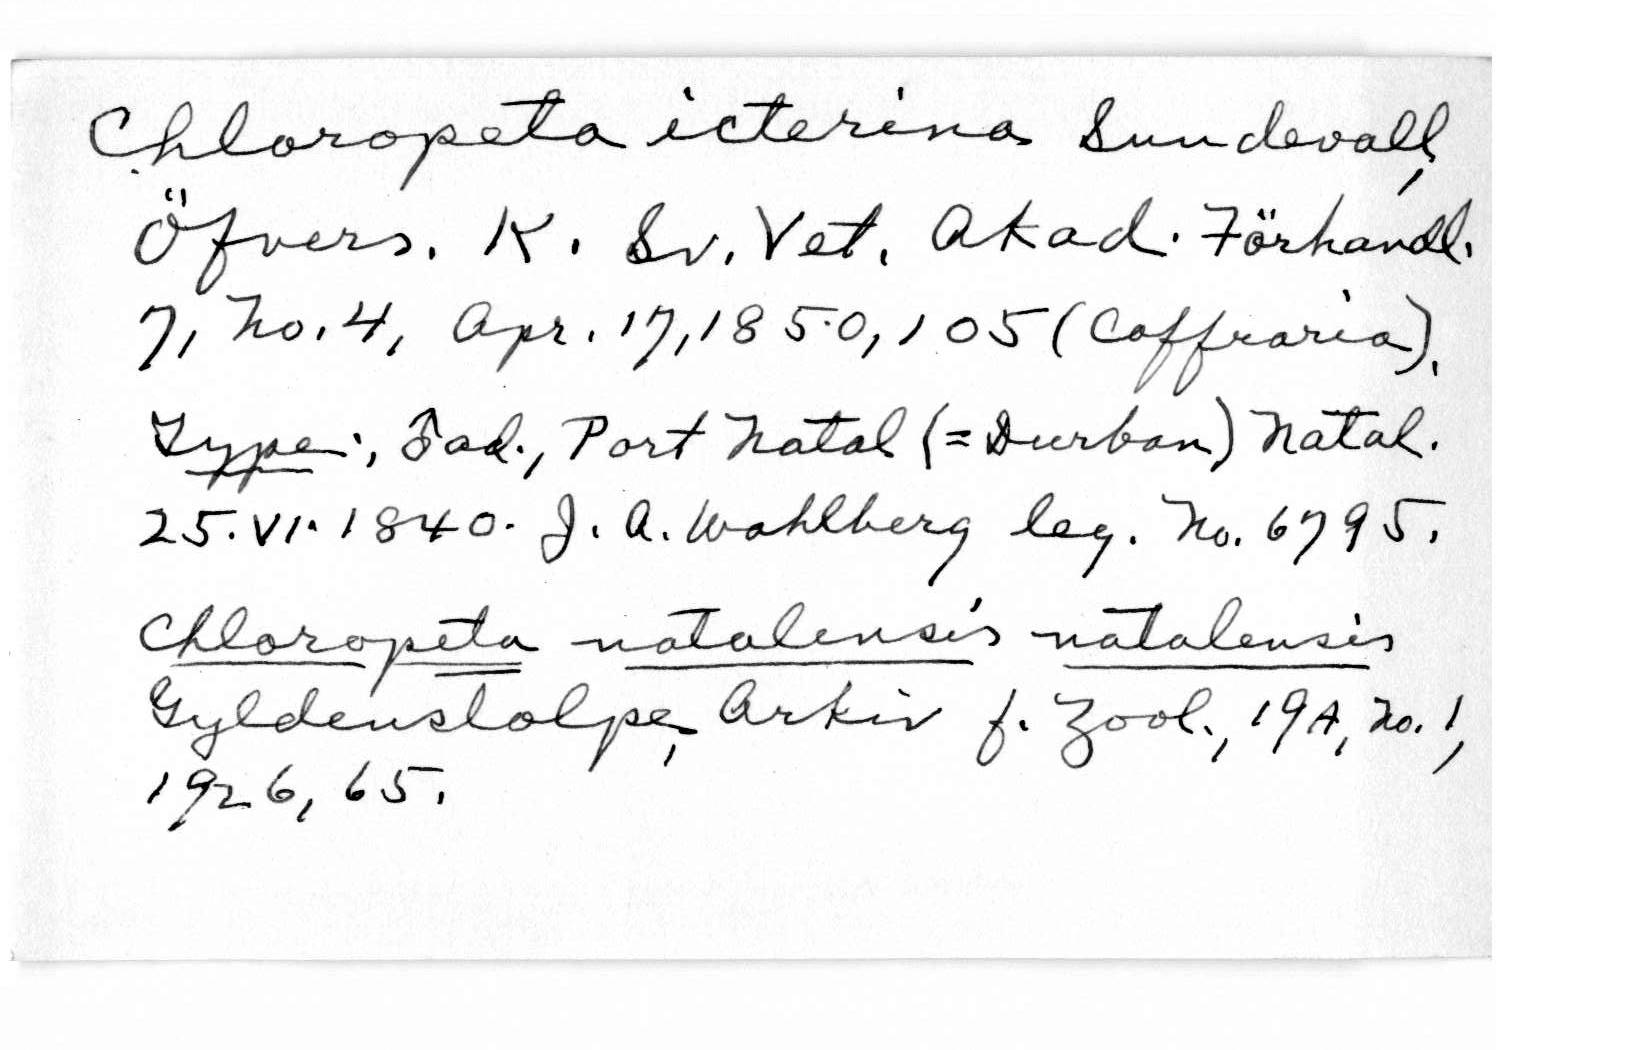 Chloropeta icterina Sundevall,
Öfvers. K. Sv. Vet. Akad. Förhandl.
7, No. 4, Apr. 17, 1850, 105 (Caffraria).
Type:, ♂ad., Port Natal (=Durban) Natal.
25.VI.1840. J. A. Wahlberg leg. No. 6795.
Chloropeta natalensis natalensis
Gyldenstolpe, Arkiv f. Zool., 19A, No. 1,
1926, 65.